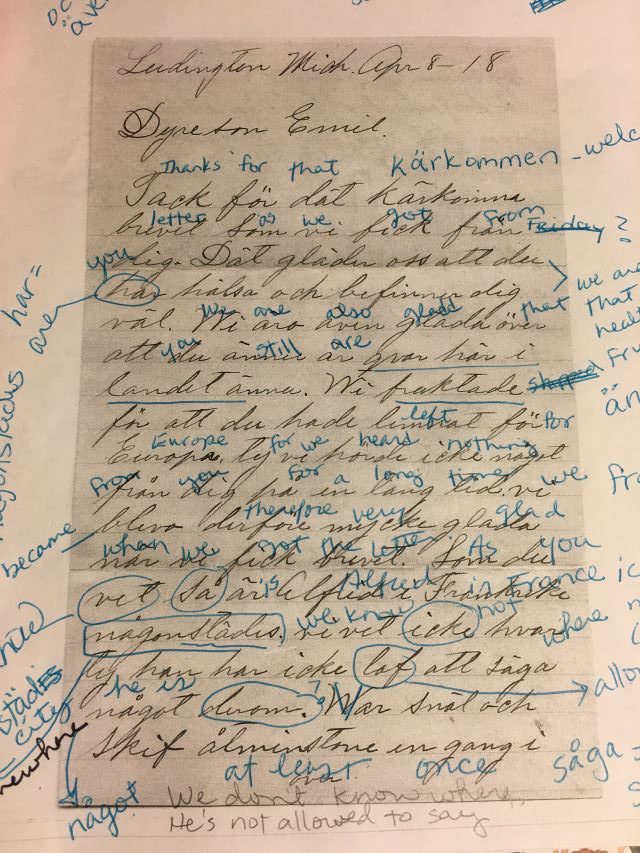 Ludington Mich. Apr 8-18
Dyre son Emil.
Thanks for that Kärkommen - welc
Tack för dät Kärkomna
letter as we got From Friday ?
brevit som vi fick från
you
dig. Dät gläder oss att du
har= are
we are
that
här hälsa och befinner dig
we are also glade that
väl. Wi äro även glada över
you still are
att du ännu är qvar här i
landet ännu. Wi fruktade
shipped
left for
för att du hade limnat för
Europe for we heard nothing
Europa, ty vi hörde icke något
From you for a long time we
från dig på en lång tid. vi
became therefore very glad
blevo derföre mycke glada
when we got the letter. As you
när vi fick brevit. Som du
is Alfred in France
vet så är Alfred i Frankrike
we know not where
någonstädes. vi vet icke hvar
ty han har icke lof att säga
he is
allow
något derom. War snäl och
skif ålminstone en gang i
at least once såga =
något
We don't know where,
He's not allowed to say